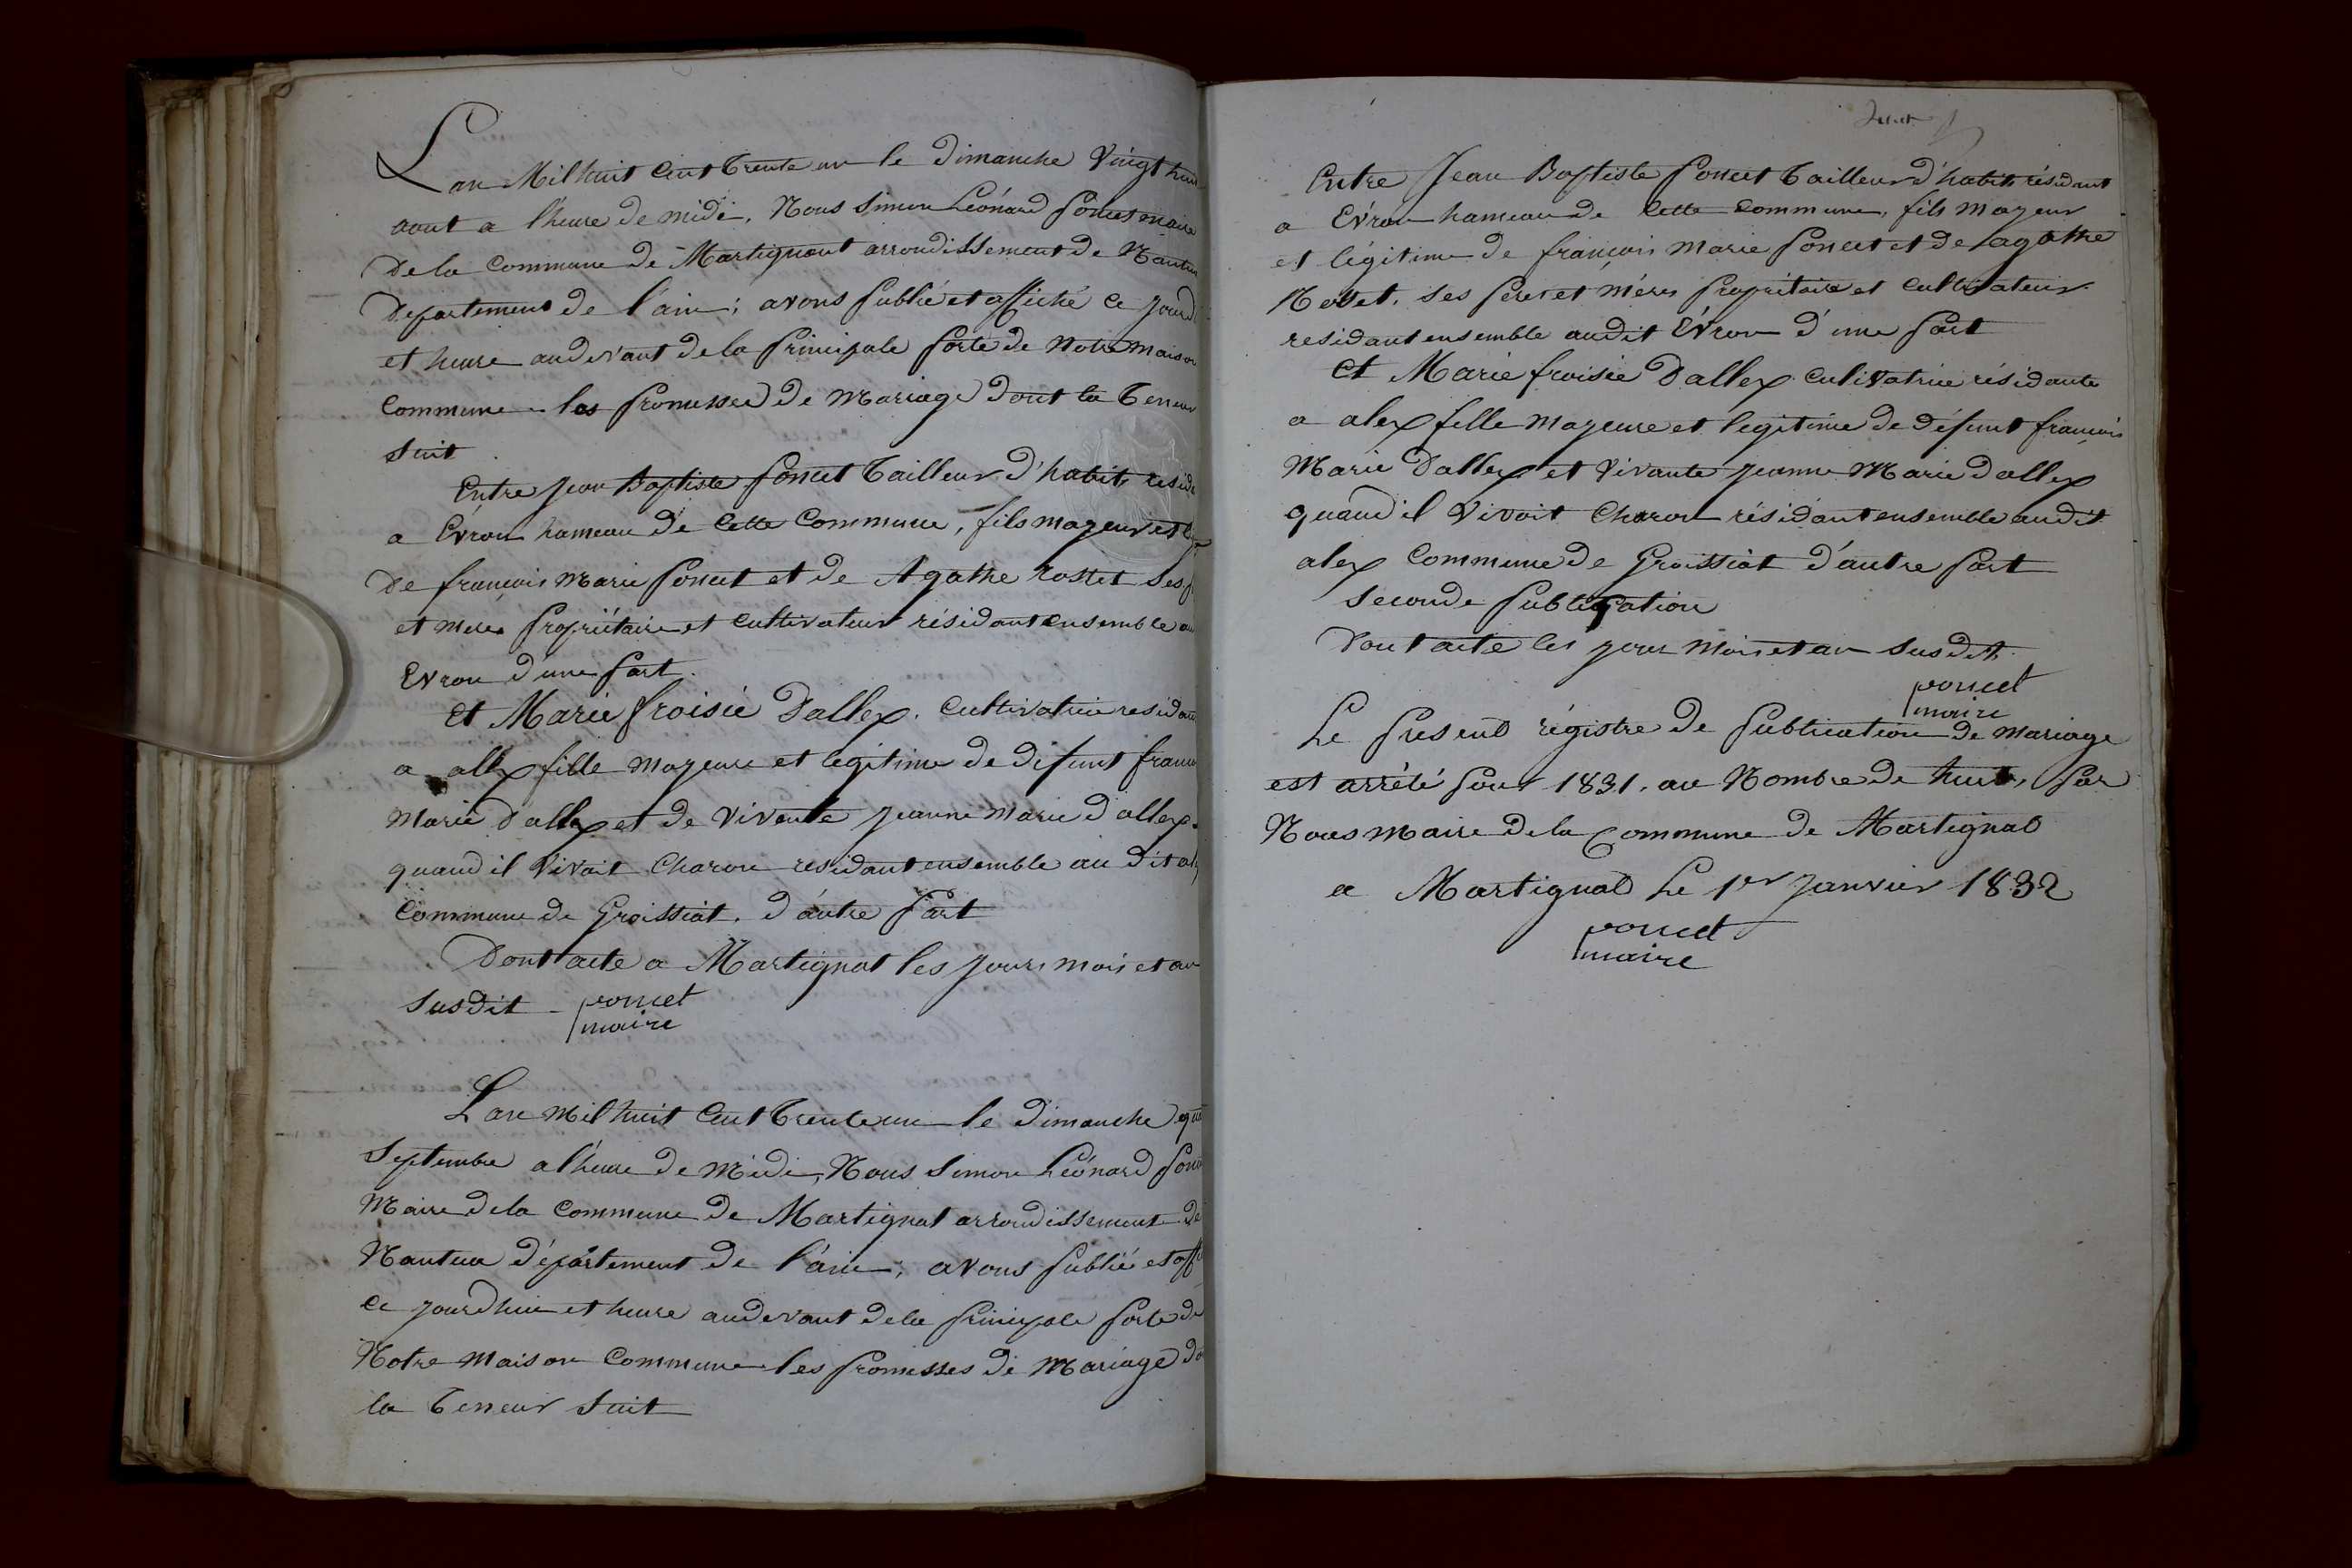 Lan Mil huit Cent trente un le dimanche vingt huit
aout a l'heure de midi, Nous Simon Léonard poncet maire
de la commune de Martignant arrondissement de Nantua
Departement de l'ain; avons publié et affiché ce jourd
et heure audevant de la principale porte de Notre maison
commune les promesses de mariage dont la teneur
suit
Entre jean Baptiste poncet tailleur d'habits resida
a Evron hameau de cette commune, fils mayeur et
de françois marie poncet et de Agathe rostet ses
et meres propriétaire et cultivateur résidant ensemble au
Evron d'une part
et Marie froisie Dallex. cultivatrice residan
a allex fille mayeure et legitime de difunt francoi
Marie dallex et de vivante jeanne marie dallex.
quand il vivait Charon residant ensemble au dit al
commune de Groissiat. d'autre part
Dont acte a Martignat les jours mois et an
susdit - poncet
maire
Lan mil huit Cent trente un le dimanche qua
Septembre a l'heure de midi, Nous Simon Léonard ponc
Maire de la commune de Martignat arrondissement de
Nantua département de l'ain, avons publié et affi
ce jourdhui et heure audevant de la principale porte de
Notre maison commune les promesses de mariage do
la teneur suit
Entre Jean Baptiste poncet tailleur d'habits résidant
a Evron hameau de cette commune, fils mayeur
et légitime de françois marie poncet et de lagathe
Rostet. ses peres et méres propriétaire et cultivateur
residant ensemble audit Evron d'une part
et Marie froisie Dallex culivatrice résidante
a alex fille mayeure et legitime de défunt françois
Marie Dallex et vivante jeanne Marie dallex
quand il vivoit Charon résidant ensemble au dit
alex commune de Groissiat d'autre part
seconde publication
Dont acte les jour mois et an susdits
poncet
maire
Le present régistre de publication de mariage
est arrêté pour 1831. au Nombre de huit, par
Nous maire de la Commune de Martignat
a Martignat le 1er janvier 1832
poncet
maire